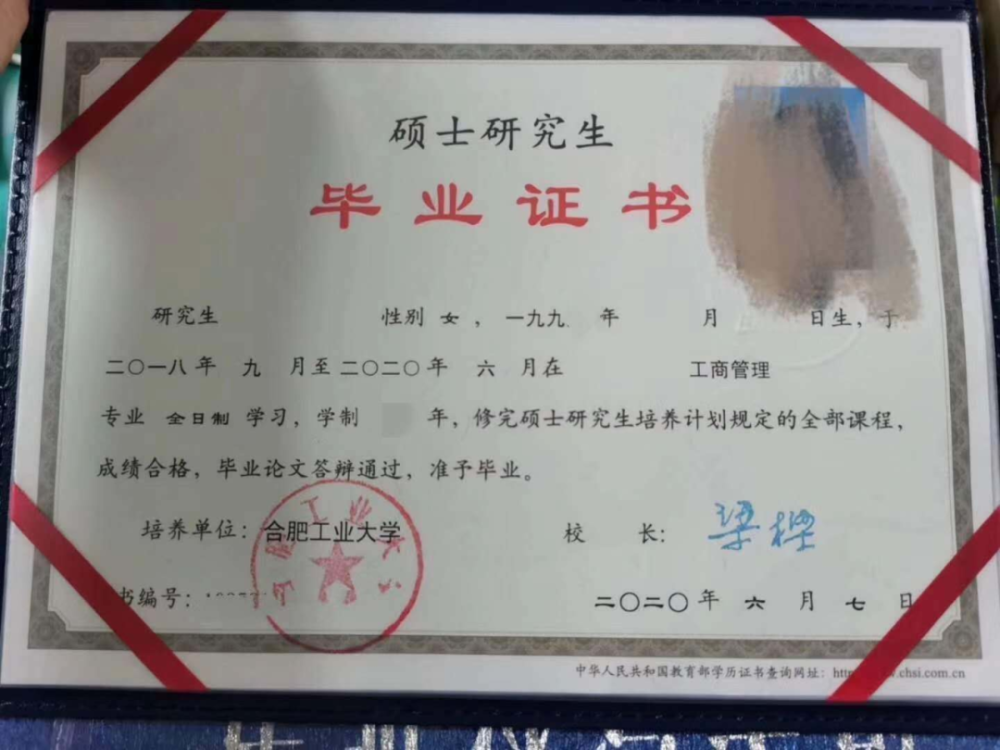 硕士研究生
毕业证书
研究生 性别 女 ，一九九 年 月 日生，于
二〇一八年 九 月至二〇二〇年 六 月在 工商管理
专业 全日制 学习，学制 年，修完硕士研究生培养计划规定的全部课程，
成绩合格，毕业论文答辩通过，准予毕业。
培养单位：合肥工业大学 校 长：梁樑
书编号：
二〇二〇年 六 月 七 日
中华人民共和国教育部学历证书查询网址：http www.chsi.com.cn